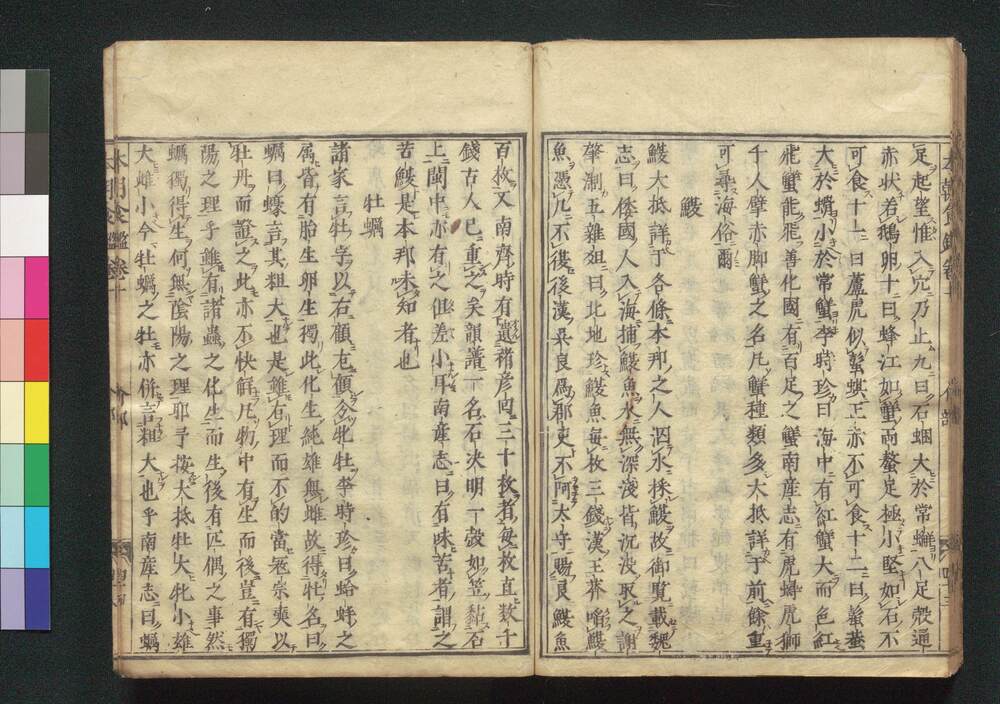 足起望惟入穴乃止九曰石蜠大於常蟹八足殻通
赤状若鵝卵十曰蜂江如蟹兩螯足極小堅如石不
可食十一曰蘆虎似蟹蜞正赤不可食十二曰蟚蜞
大於蟧小於常蟹李時珍曰海中有紅蟹大而色紅
飛蟹能飛善化國有百足之蟹南産志有虎蟳虎獅
千人擘赤脚蟹之名凡蟹種類多大抵詳于前餘重
可尋海俗爾
鰒
鰒大抵詳于各條本邦之人泗水採鰒故御覽載魏
志曰倭國人入海捕鰒魚水無深淺皆沉没取之謝
肇淛五雜俎曰北地珍鰒魚毎枚三錢漢王莽啗鰒
魚憑几不復後漢呉良爲郡吏不阿太守賜良鰒魚
百枚又南齊時有遺褚彦回三十枚者毎枚直数千
錢古人已重之矣韻議一名石決明一殻如笠黏石
上閩中亦有之但差小耳南産志曰有味苦者謂之
苦鰒是本邦未知者也
牡蠣
諸家言牡字以右顧左顧分牝牡李時珍曰蛤蚌之
屬皆有胎生卵生獨此化生純雄無雌故得牡名曰
蠣曰蠔言其粗大也是雖右理而不的當宼宗奭以
牡丹而證之此亦不快觧凡物中有生而後豈有獨
陽之理乎雖有諸蟲之化生而生後有匹偶之事然
蠣獨得生何無陰陽之理耶予按大抵牡大牝小雄
大雌小今牡蠣之牡亦併言粗大也乎南産志曰蠣
本朝食鑑巻十